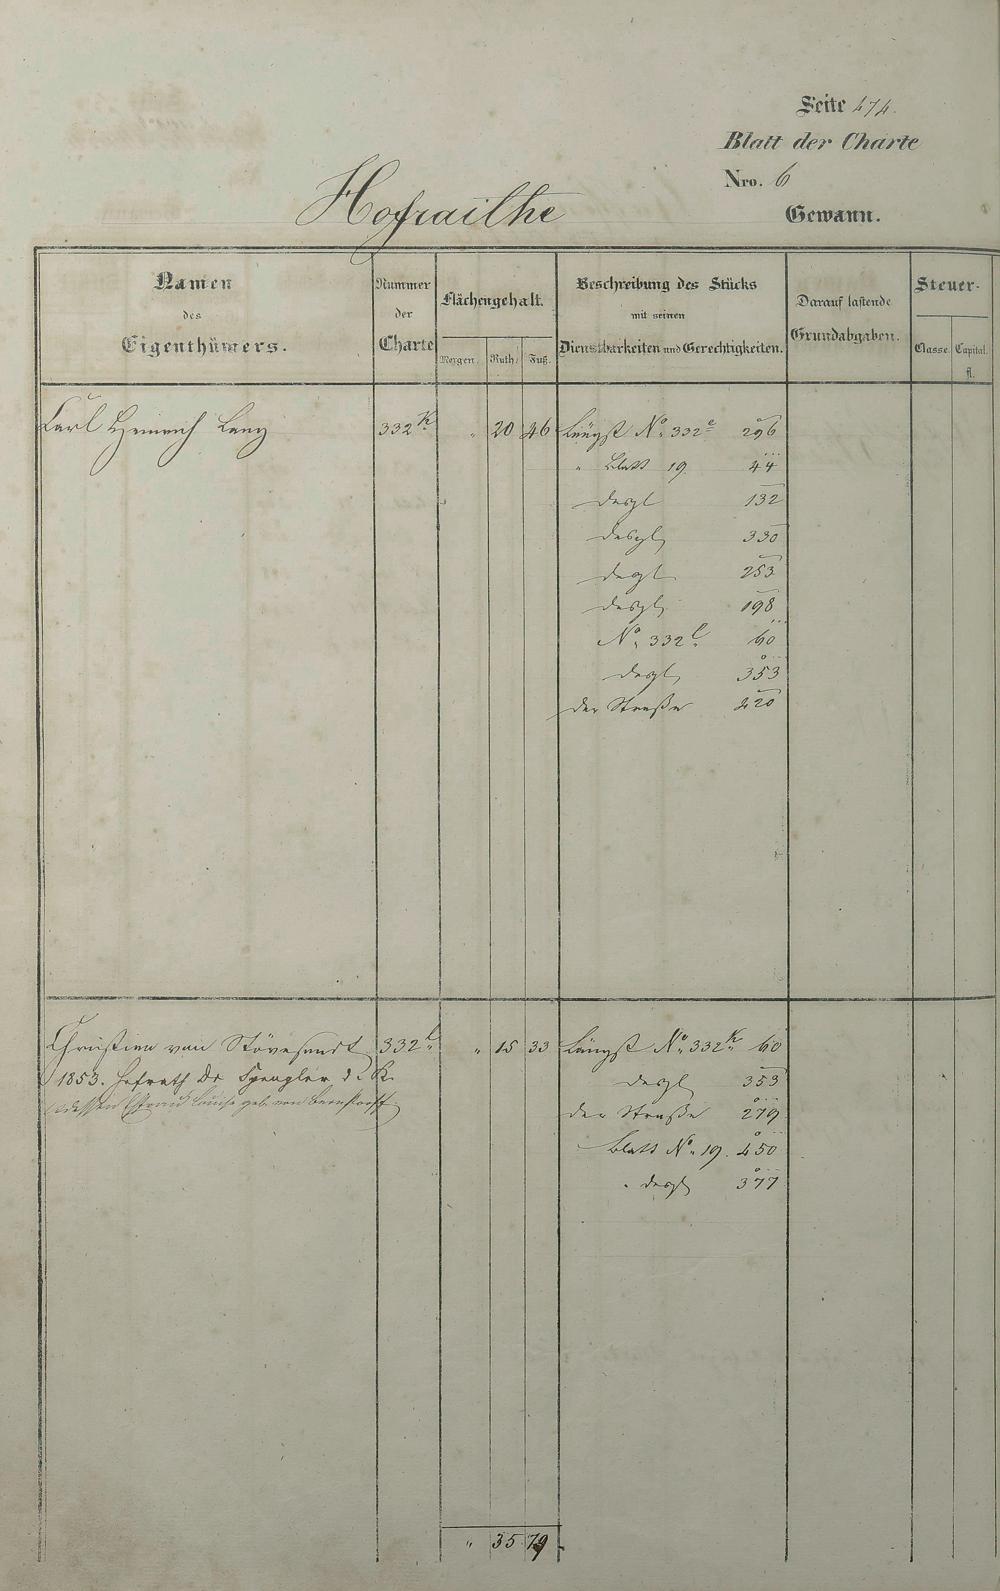 Seite 474.
Blatt der Charte
Nro. 6
Gewann.
Hofraithe
Namen des Eigenthümers.
Nummer der Charte
Flächengehalt.
Morgen. Ruth. Fuß.
Beschreibung des Stücks mit seinen Dienstbarkeiten und Gerechtigkeiten.
Darauf lastende Grundabgaben.
Steuer-
Classe. Capital. fl.
Carl Heinrich Lang 332 K „ 20 46 Längst No. 332 e 296
„ Blatt 19 44
desgl 132
desgl 330
desgl 253
desgl 198
No. 332 l 60
desgl 353
der Straße 420
Christian von Stövesandt 332 l „ 15 33 Längst No. 332 K 60
1853. Hofrath Dr Spengler d. K. desgl 353
dessen Frau Louise geb. von Bernstorff der Straße 279
Blatt No. 19. 450
„ desgl 377
„ 35 79